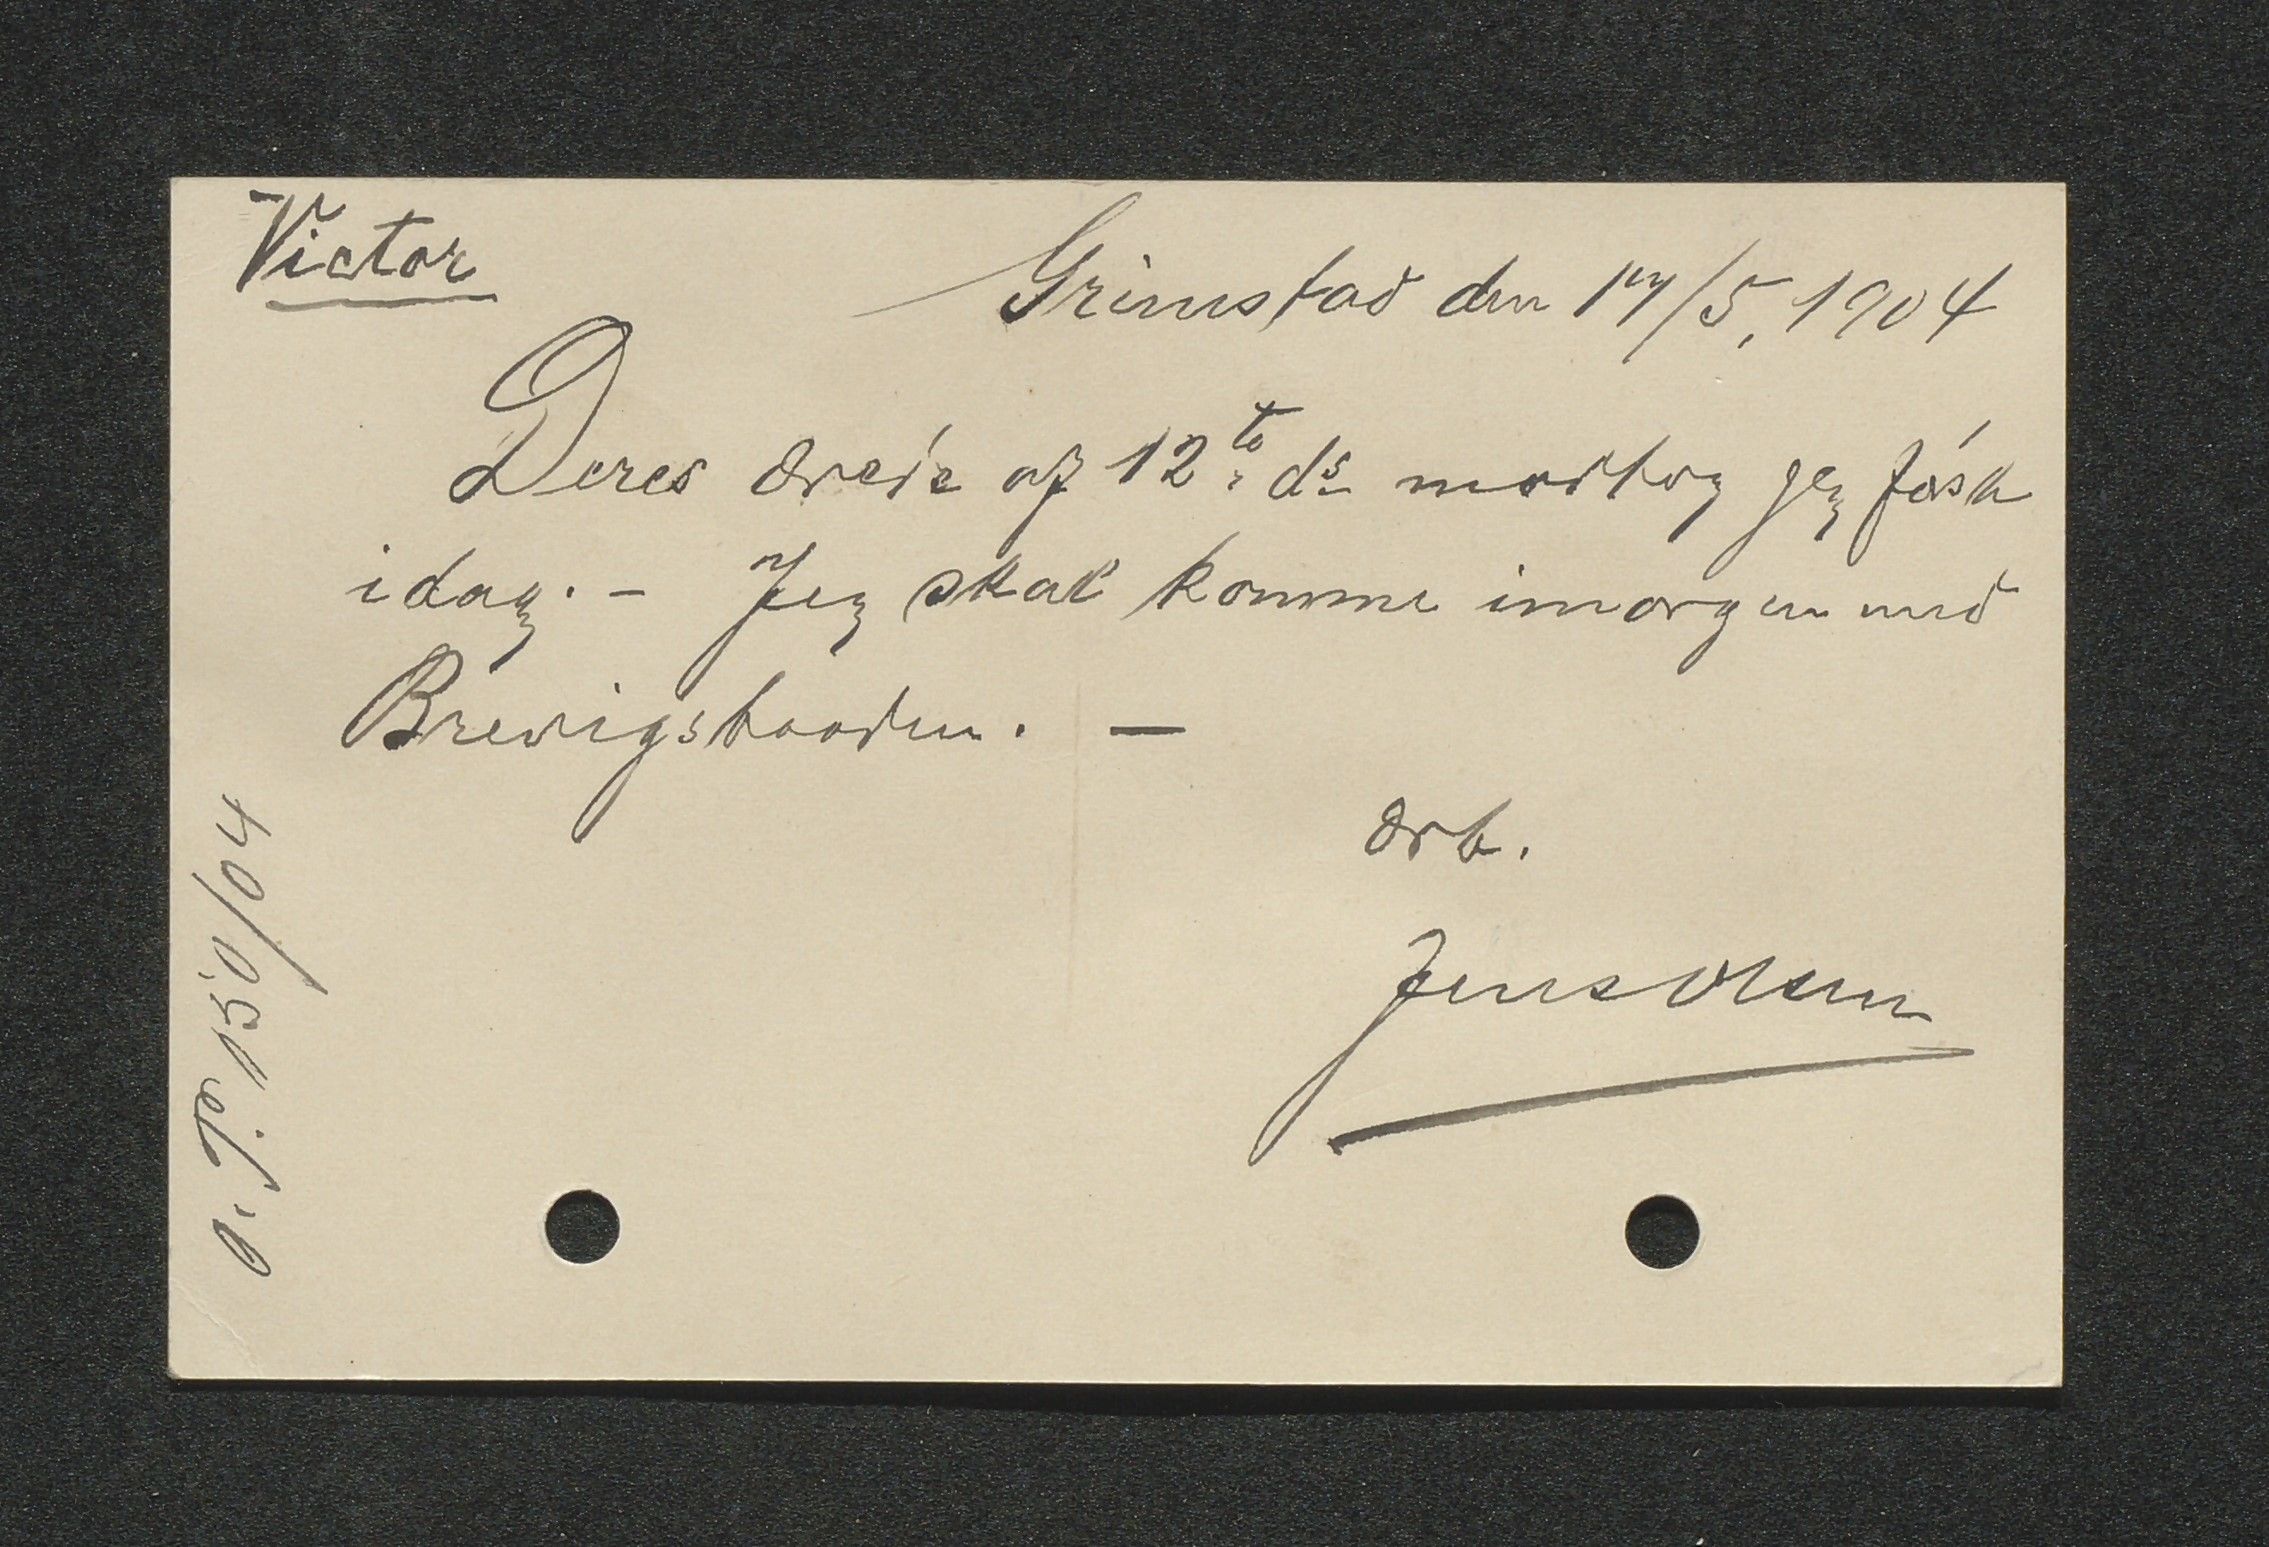 Victor
Grimstad den 17/5, 1904
Deres ærede af 12te ds modtog jeg først
idag. - Jeg skal komme imorgen med
Brevigsbaaden. —
Ærb.
Jens Olsen
P. 150/04